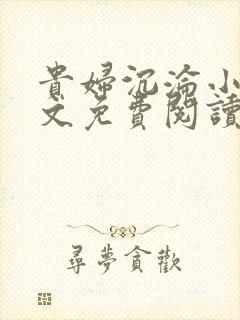 貴婦沉淪小
文免費閱讀
尋夢貪歡